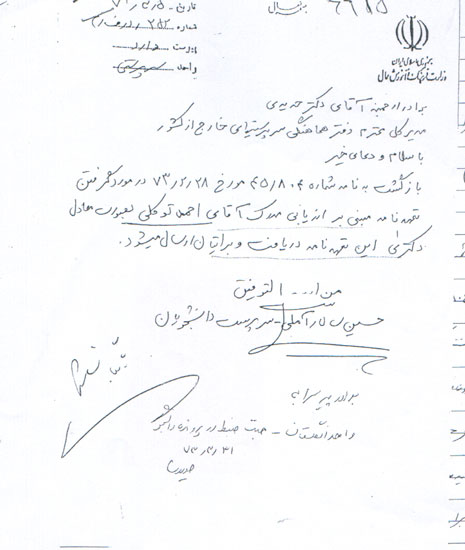 تاریخ
شماره
پیوست دارد
واحد سرپرستی
جمهوری اسلامی ایران
وزارت فرهنگ و آموزش عالی
برادر ارجمند آقای دکتر حدیدی
مدیر کل محترم دفتر هماهنگی سرپرستیهای خارج از کشور
با سلام و دعای خیر
بازگشت به نامه شماره ۴۵/۸۰۴ مورخ ۷۳/۲/۲۸ در مورد گرفتن
تعهدنامه مبنی بر ارزیابی مدرک آقای احمد توکلی بصورت معادل
دکتری، این تعهد نامه دریافت و برایتان ارسال میشود.
من ا... التوفیق
حسین سالار آملی - سرپرست دانشجویان
واحد انگلستان - جهت ضبط در پرونده دانشجو